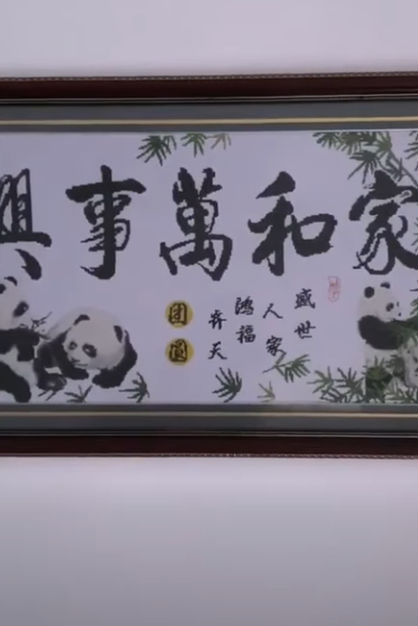 家和萬事興
盛世
人家
鴻福
齐天
團
圓